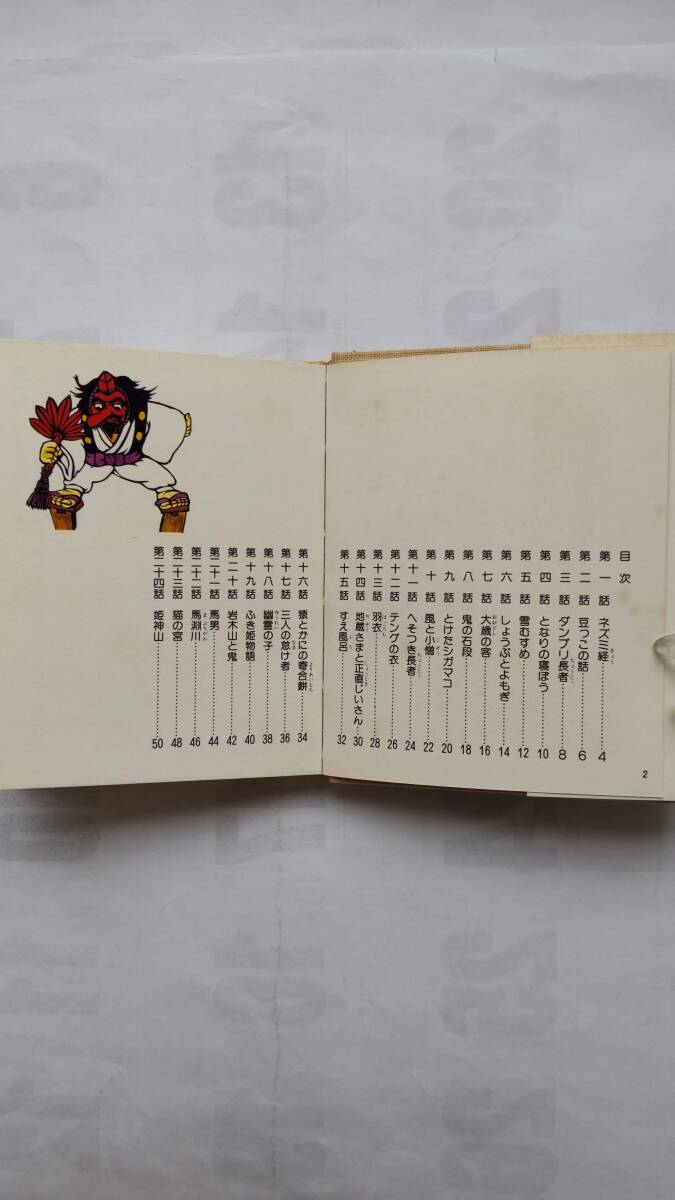 目次
第一話 ネズミ経……4
第二話 豆つこの話……6
第三話 ダンブリ長者……8
第四話 となりの寝ぼう……10
第五話 雪むすめ……12
第六話 しょうぶとよもぎ……14
第七話 大歳の客……16
第八話 鬼の石段……18
第九話 とけたシガマコ……20
第十話 風と小僧……22
第十一話 へそつき長者……24
第十二話 テングの衣……26
第十三話 羽衣……28
第十四話 地蔵さまと正直じいさん……30
第十五話 すえ風呂……32
2
第十六話 猿とかにの寄合餅……34
第十七話 三人の怠け者……36
第十八話 幽霊の子……38
第十九話 ふき姫物語……40
第二十話 岩木山と鬼……42
第二十一話 馬男……44
第二十二話 馬淵川……46
第二十三話 猫の宮……48
第二十四話 姫神山……50